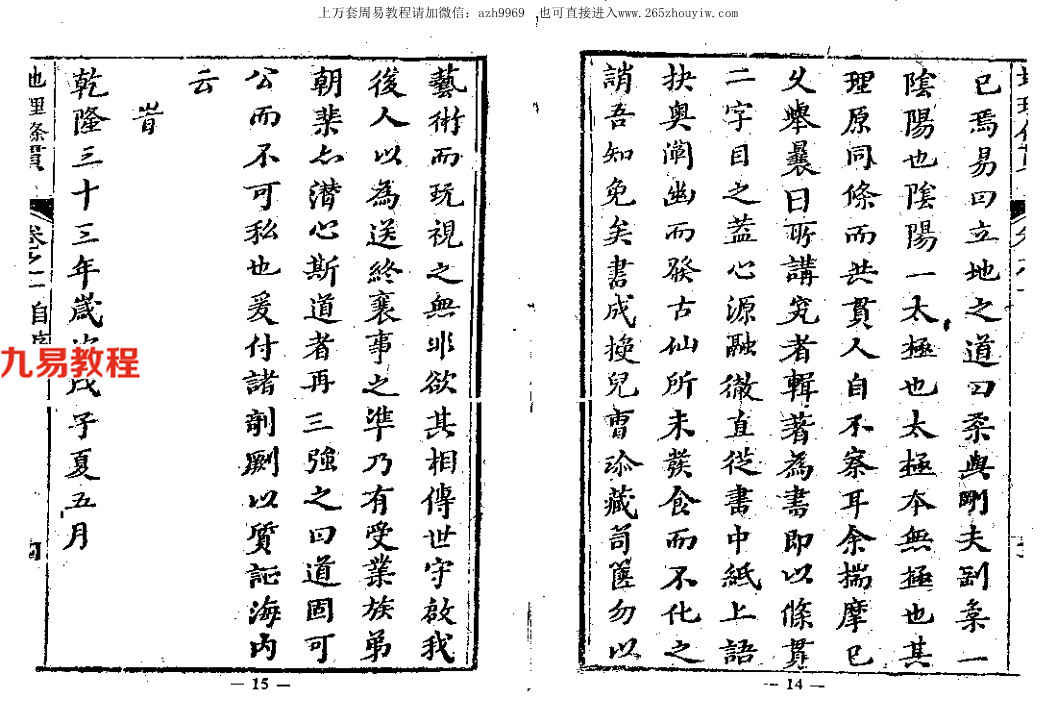 上万套周易教程请加微信：azh9969　也可直接进入www.265zhouyiw.com
已焉易曰立地之道曰柔與剛夫剛柔一
陰陽也陰陽一太極也太極本無極也其
理原同條而共貫人自不察耳余揣摩已
乆舉曩日所講究者輯著為書即以條貫
二字目之蓋心源融徹直從書中紙上語
抉奥闡幽而發古仙所未發食而不化之
誚吾知免矣書成授兒曹珍藏笥篋勿以
— 14 —
藝術而玩視之無非欲其相傳世守啟我
後人以為送終襄事之準乃有受業族弟
朝棐志潜心斯道者再三強之曰道固可
公而不可私也爰付諸剞劂以質証海内
云
旹
乾隆三十三年歲次戊子夏五月
地理條貫
卷之一
自序
— 15 —
九易教程